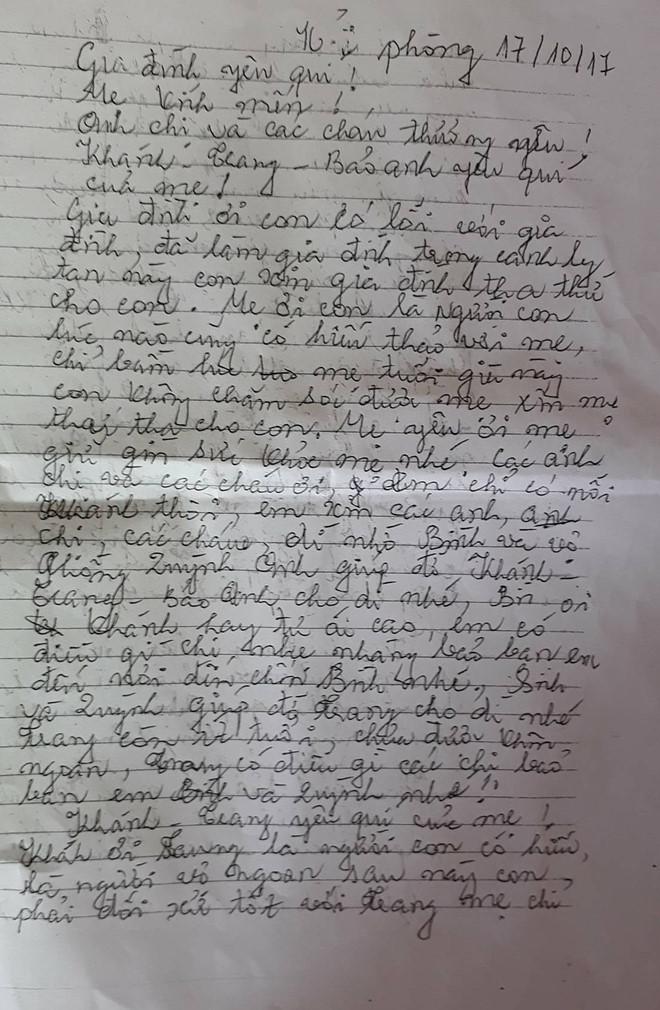 Hải phòng 17/10/17
Gia đình yêu quí!
Mẹ kính mến!
Anh chị và các cháu thương yêu!
Khánh - Trang - Bảo anh yêu quí
của mẹ!
Gia đình ơi con có lỗi với gia
đình, đã làm gia đình trong cảnh ly
tan này con xin gia đình tha thứ
cho con. Mẹ ơi con là người con
lúc nào cũng có hiếu thảo với mẹ,
chỉ mẹ tuổi già này
con không chăm sóc được mẹ xin mẹ
tha cho con. Mẹ yêu ơi mẹ
giữ gìn sức khỏe mẹ nhé. Các anh
chị và các cháu ơi, em chỉ có mỗi
Khánh thôi, em xin các anh, anh
chị, các cháu, dì nhờ Bình và vợ
chồng Quỳnh Anh giúp đỡ Khánh -
Trang - Bảo Anh cho dì nhé, Bn ơi
Khánh hay tự ái cao, em có
điều gì chị nhẹ nhàng bảo ban em
đến nơi đến chốn Bình nhé, Bình
và Quỳnh giúp đỡ Trang cho dì nhé
Trang còn ít tuổi, chưa được khôn
ngoan, Trang có điều gì các chị bảo
ban em và Quỳnh nhé!
Khánh - Trang yêu quí của mẹ!
Khánh ơi là người con có hiếu,
là người vợ ngoan sau này con
phải đối xử tốt với Trang mẹ chỉ